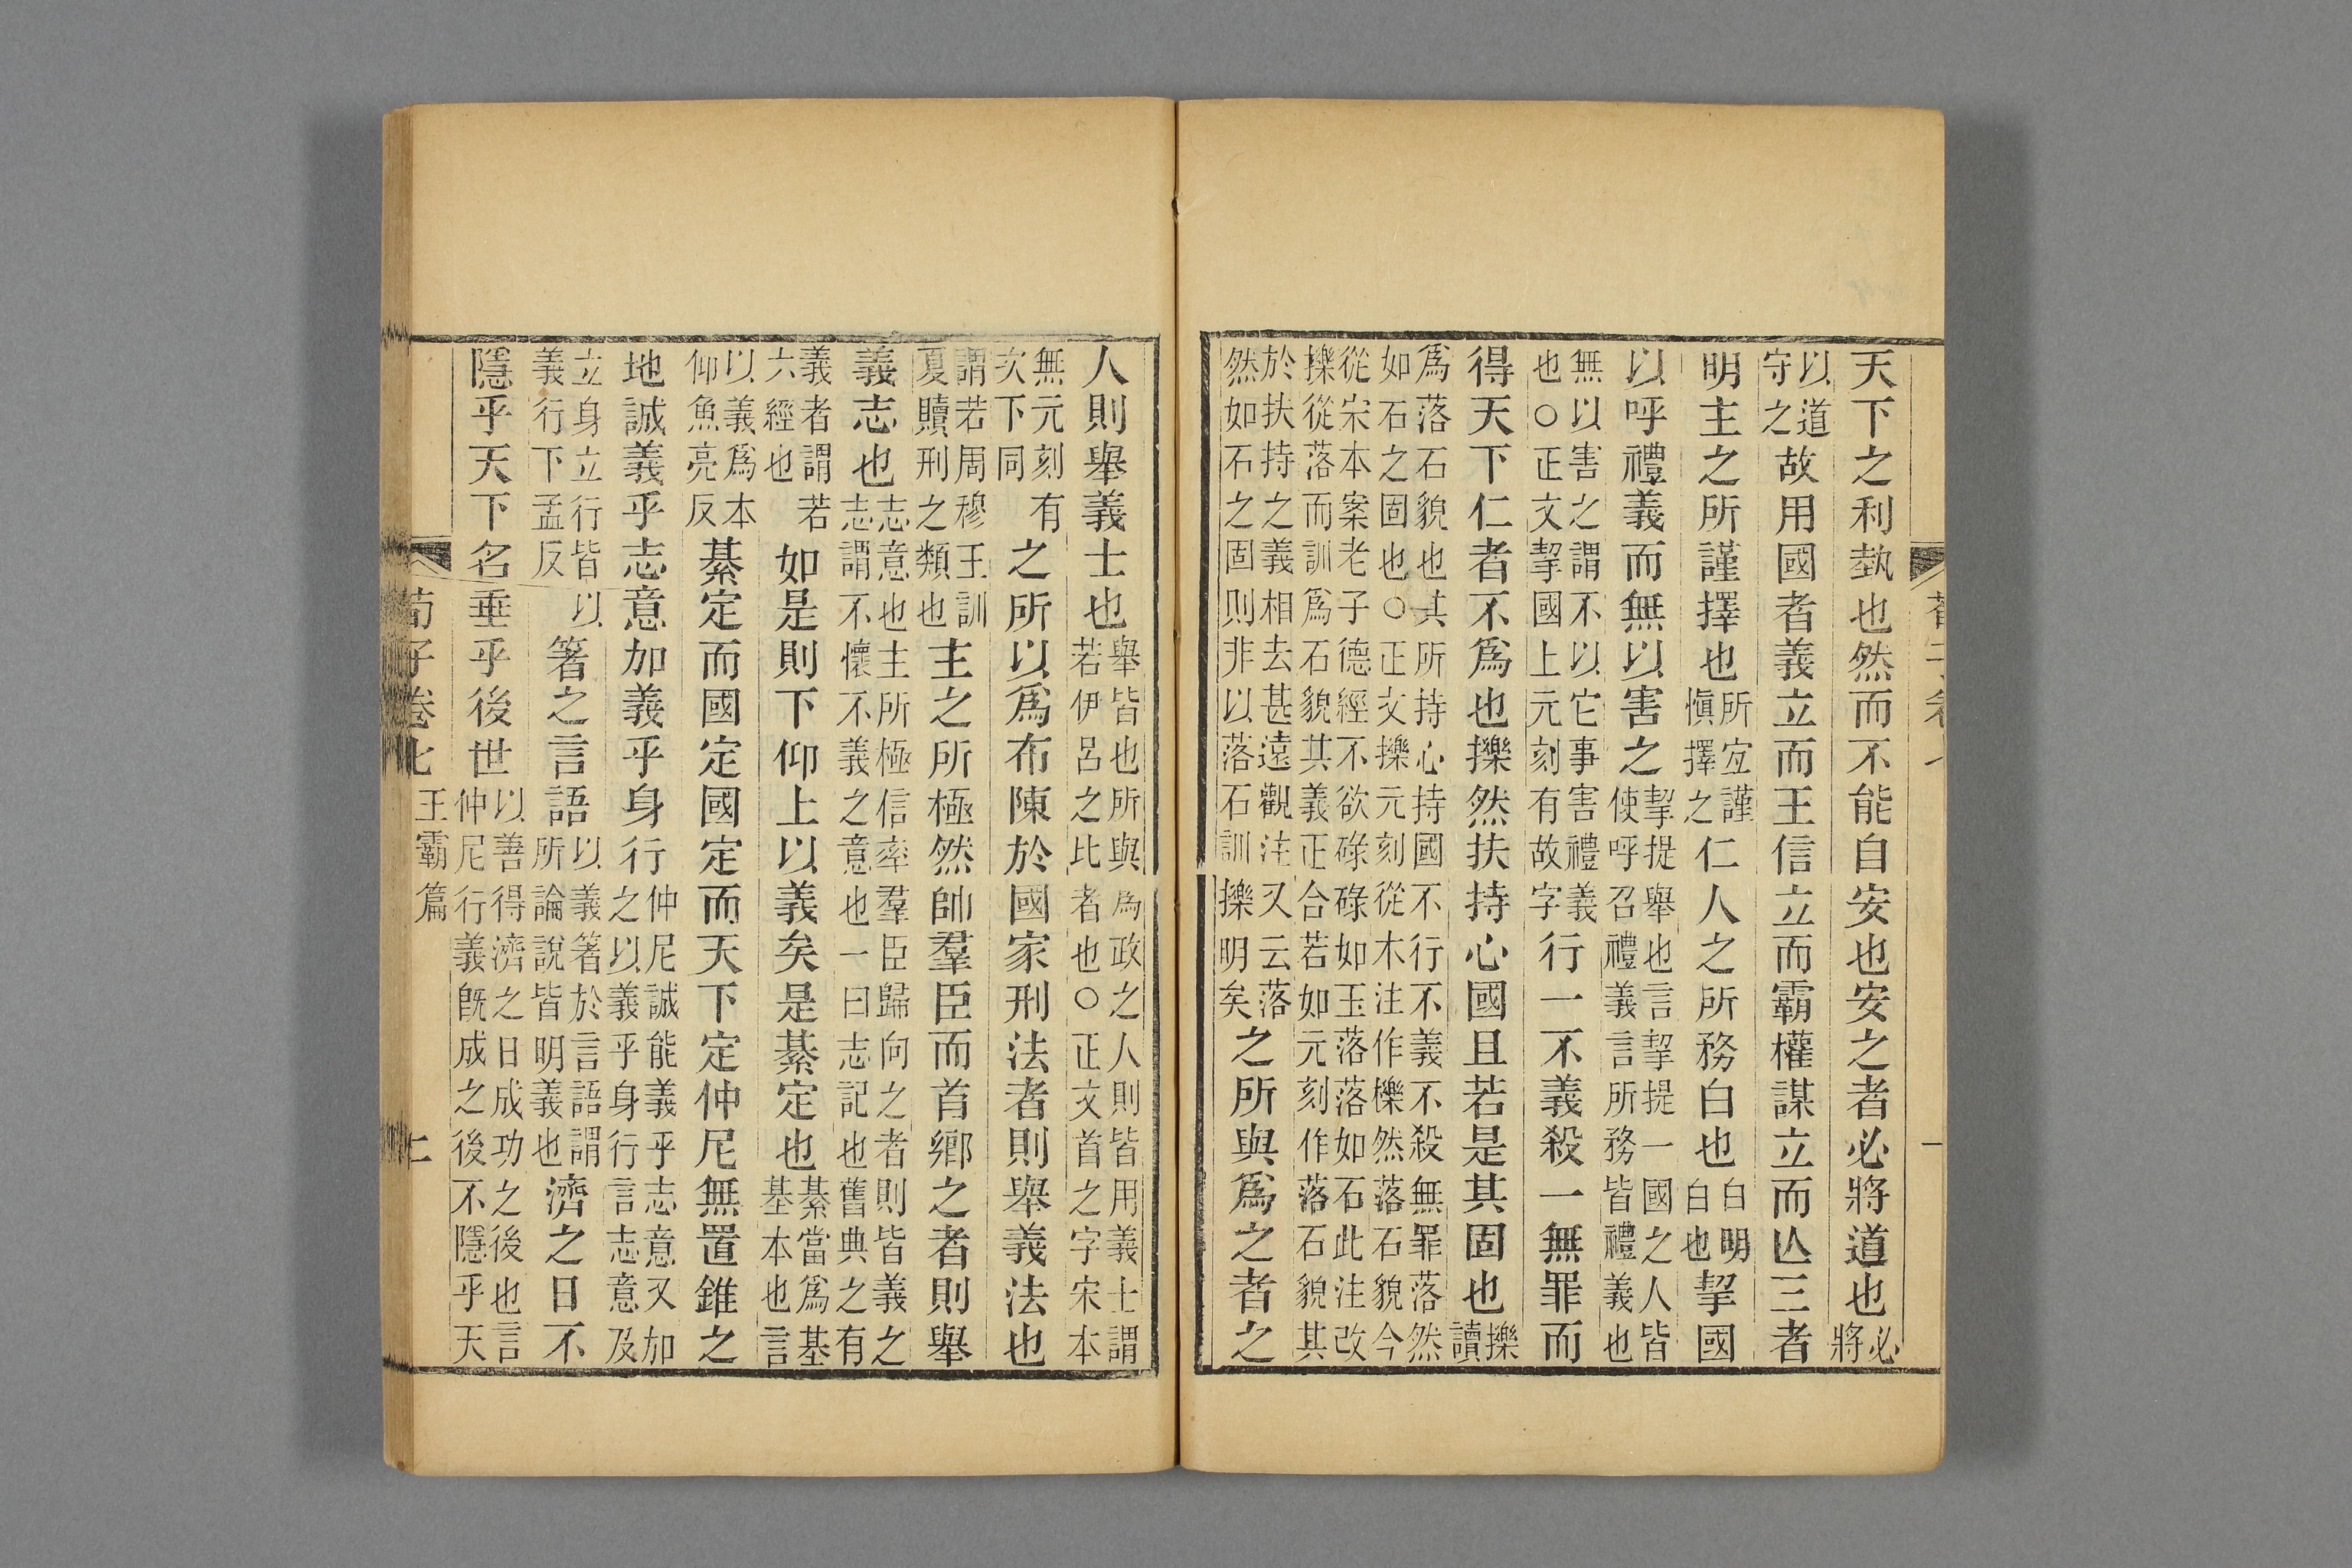 荀子卷 一
天下之利埶也然而不能自安也安之者必將道也必將
以道守之故用國者義立而王信立而霸權謀立而亾三者
明主之所謹擇也所宜謹愼擇之仁人之所務白也白明白也挈國
以呼禮義而無以害之挈提舉也言挈提一國之人皆使呼召禮義言所務皆禮義也
無以害之謂不以它事害禮義也○正文挈國上元刻有故字行一不義殺一無罪而
得天下仁者不爲也擽然扶持心國且若是其固也擽讀
爲落石貌也其所持心持國不行不義不殺無罪落然如石之固也○正文擽元刻從木注作櫟然落石貌今
從宋本案老子德經不欲碌碌如玉落落如石此注改擽從落而訓爲石貌其義正合若如元刻作落石貌其
於扶持之義相去甚遠觀注又云落然如石之固則非以落石訓擽明矣之所與爲之者之
人則舉義士也舉皆也所與爲政之人則皆用義士謂若伊呂之比者也○正文首之字宋本
無元刻有次下同之所以爲布陳於國家刑法者則舉義法也
謂若周穆王訓夏贖刑之類也主之所極然帥羣臣而首鄉之者則舉
義志也志意也主所極信率羣臣歸向之者則皆義之志謂不懷不義之意也一曰志記也舊典之有
義者謂若六經也如是則下仰上以義矣是綦定也綦當爲基基本也言
以義爲本仰魚亮反綦定而國定國定而天下定仲尼無置錐之
地誠義乎志意加義乎身行仲尼誠能義乎志意又加之以義乎身行言志意及
立身立行皆以義行下孟反箸之言語以義箸於言語謂所論說皆明義也濟之日不
隱乎天下名垂乎後世以善得濟之日成功之後也言仲尼行義旣成之後不隱乎天
荀子卷七 王霸篇 二